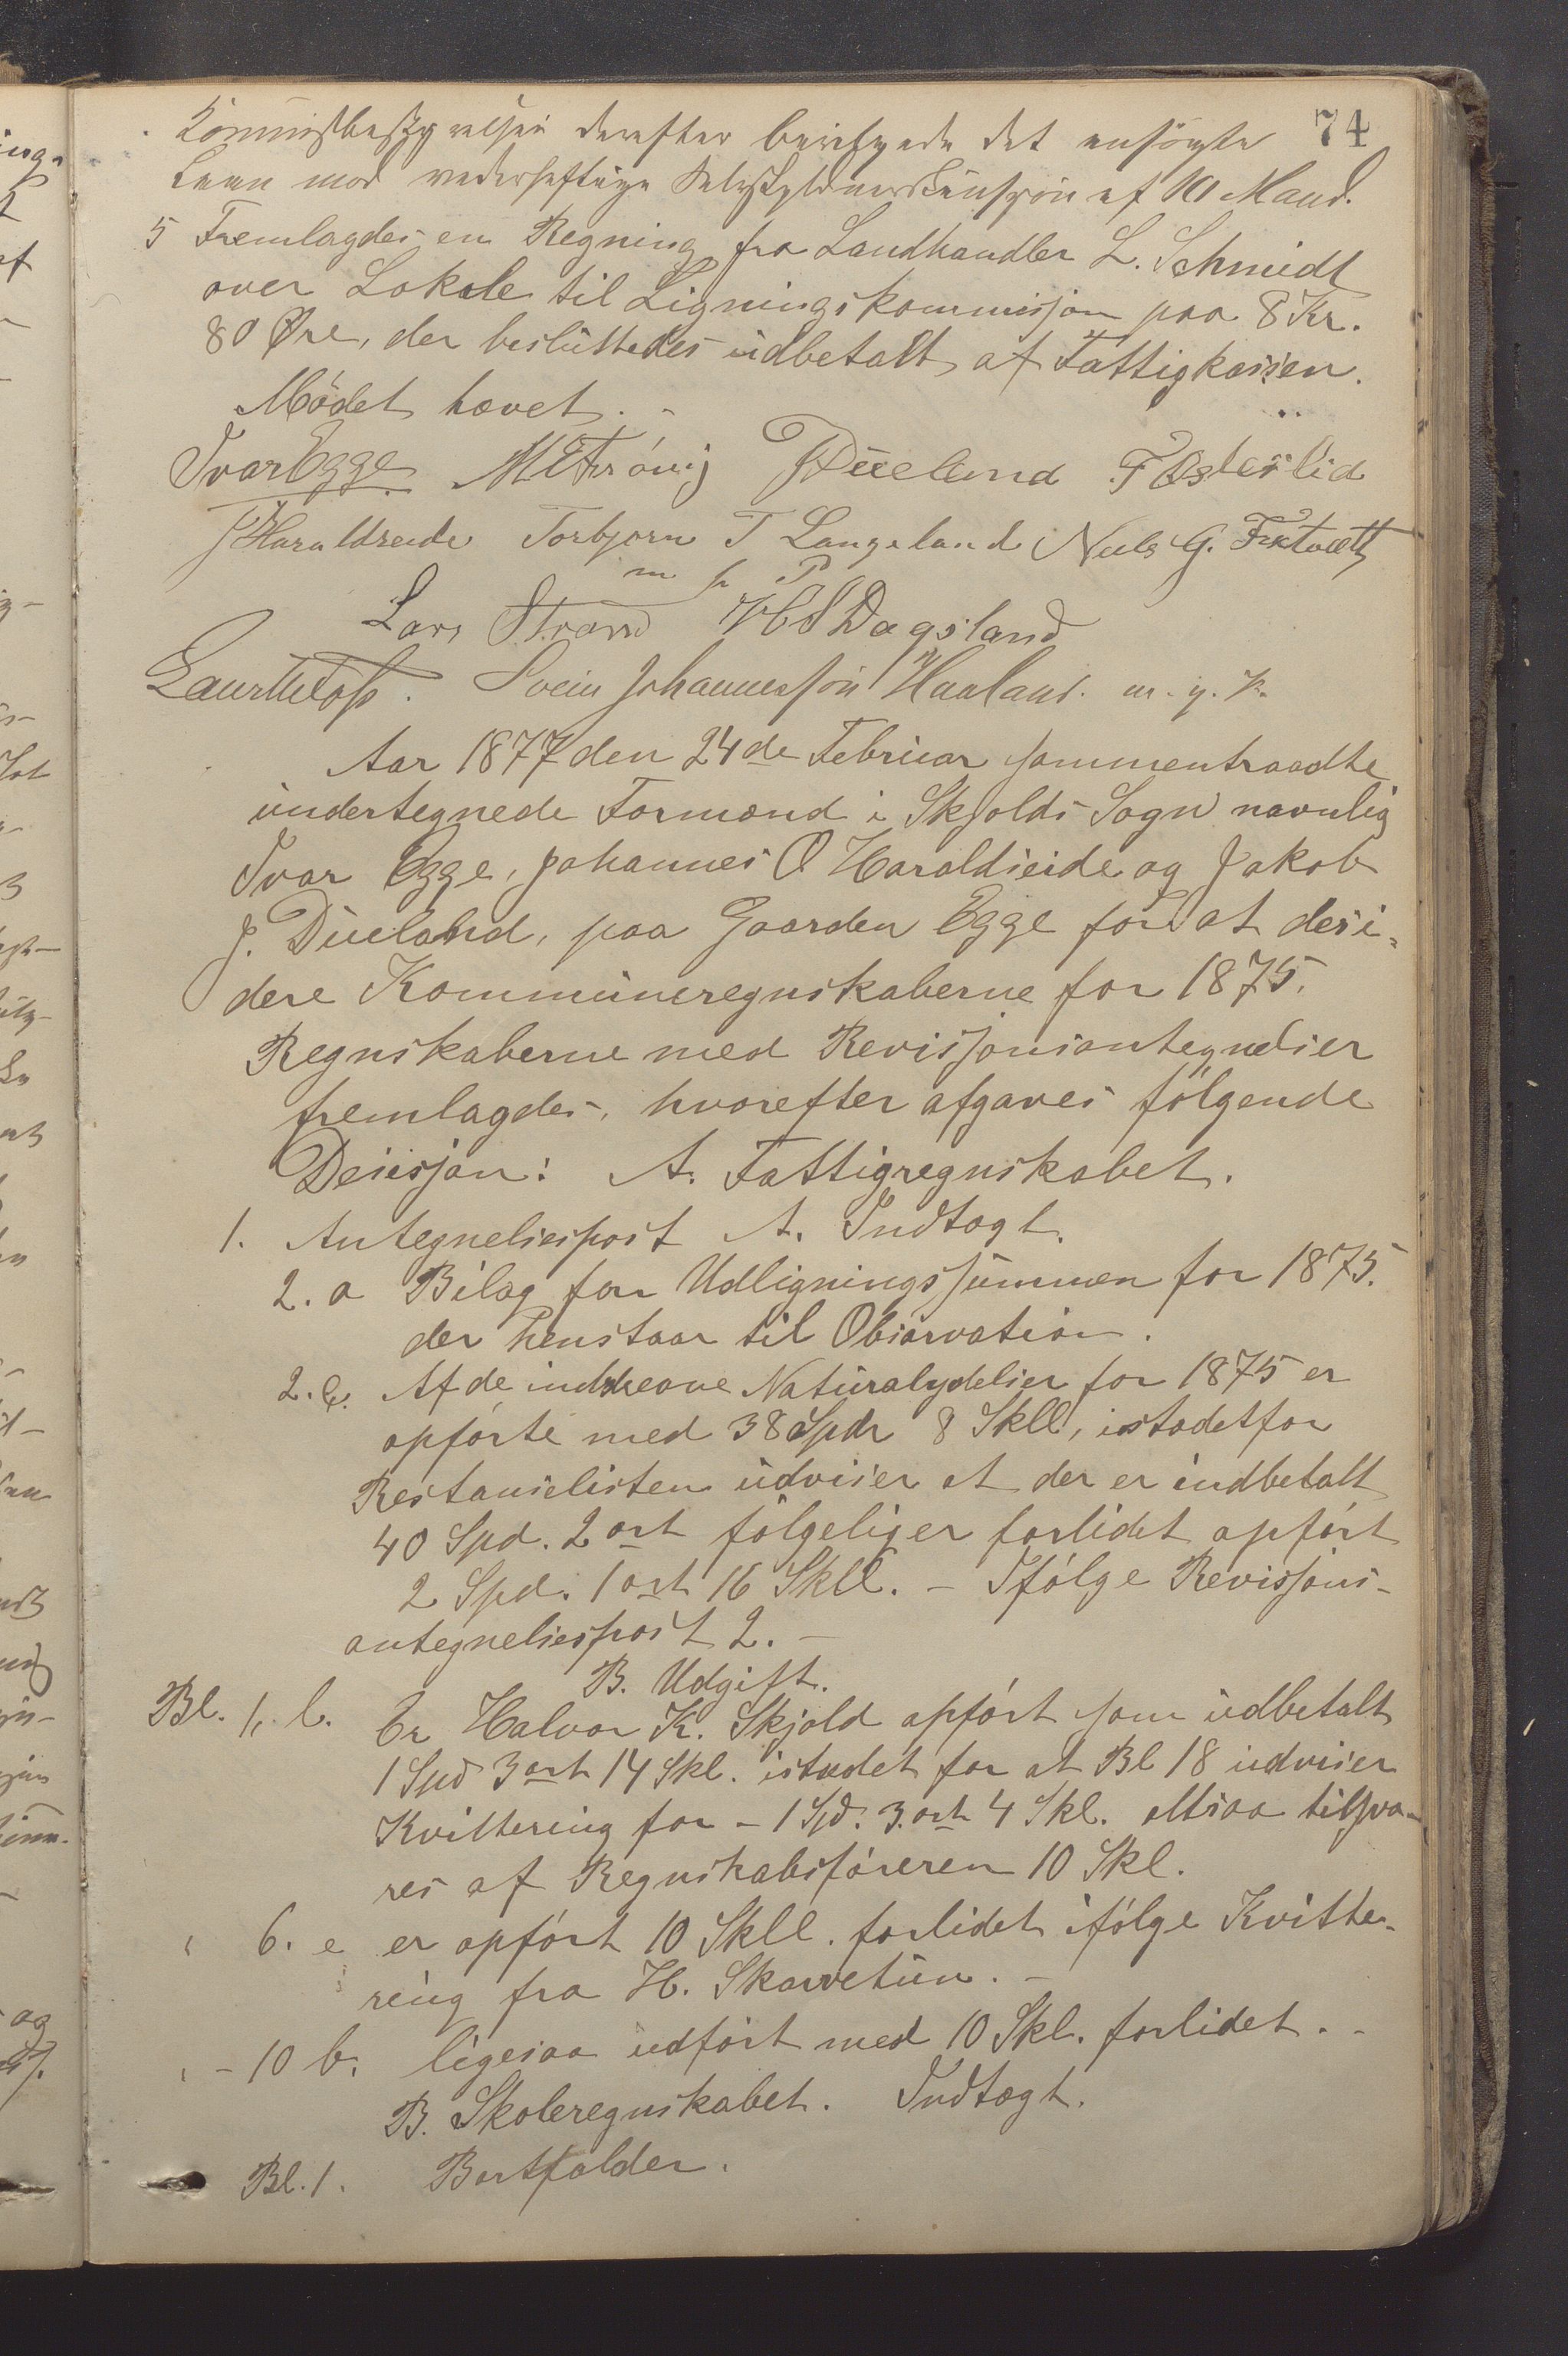 74
Kommunbestyrelsen derefter bevilgede det ansögte
Laan mod vederhæftige Selvskyldnerkaution af 10 Mand.
5 Fremlagdes en Regning fra Landhandler L. Schmidt
over Lokale til Ligningskommissjon paa 8 Kr.
80 Øre, der besluttedes udbetalt af Fattigkassen.
Mödet hævet. -
Ivar Egge J Dueland F Østeslid
J Haraldseide Torbjorn T Langeland Niels G.
m p P
Lars Strand H S Dagsland
Svein Johannessön Haaland. m. p. P.
Aar 1877 den 24de Februar sammentraadte
undertegnede Formænd i Skjolds Sogn navnlig
Ivar Egge, Johannes O Haraldseide og Jakob
J. Dueland, paa Gaarden Egge for at desi-
dere Kommuneregnskaberne for 1875.
Regnskaberne med Revisjonsantegnelser
fremlagdes, hvorefter afgaves fölgende
Desisjon: A. Fattigregnskabet.
1. Antegnelsespost A. Indtægt.
2. a Bilag for Udligningssummen for 1875.
der henstaar til Observation.
2. b. Af de inddrevne Naturalydelser for 1875 er
opförte med 38 Spdr 8 Skll, istedetfor
Restanselisten udviser at der er indbetalt
40 Spd. 2 ort fölgelig er forlidet opfört
2 Spd. 1 ort 16 Skll. - Ifölge Revisjons-
antegnelsespost 2. -
B. Udgift.
Bl. 1. b. Er Halvor K. Skjold opfört som udbetalt
1 Spd 3 ort 14 Skl. istedet for at Bl 18 udviser
Kvittering for - 1 Spd. 3. ort 4 Skl. altsaa tilsva-
res af Regnskabsföreren 10 Skl.
6. e er opfört 10 Skll. forlidet ifölge Kvitte-
ring fra H. Skarvetun. -
- 10 b. ligesaa udfört med 10 Skl. forlidet. -
B. Skoleregnskabet. Indtægt.
Bl. 1. Bortfalder.